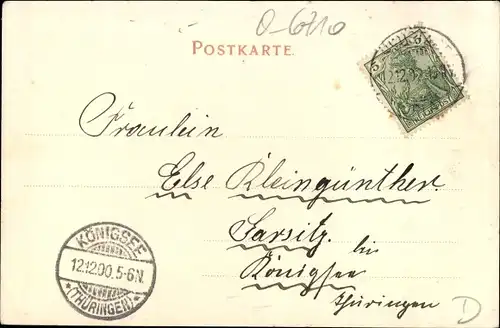 O-6710
POSTKARTE.
Fraulein
Else Kleingünther.
bei
Königsee
Thüringen
KÖNIGSEE
12.12.00.5-6N.
*(THÜRINGEN)*
D